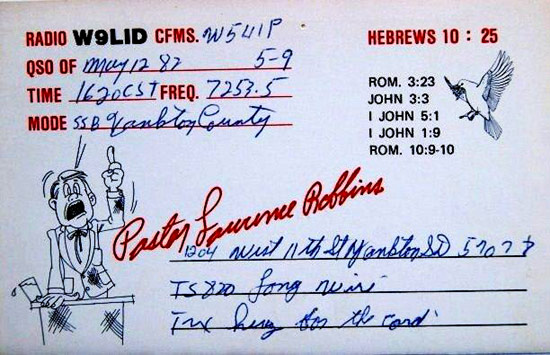 RADIO W9LID CFMS. W5UIP
QSO OF May 12 82 5-9
TIME 1620 CST FREQ. 7253.5
MODE SSB Yankton County
HEBREWS 10 : 25
ROM. 3:23
JOHN 3:3
I JOHN 5:1
I JOHN 1:9
ROM. 10:9-10
Pastor Lawrence Robbins
1204 West 11th St Yankton SD 57078
TS 820 Long Wire
Tnx for the card